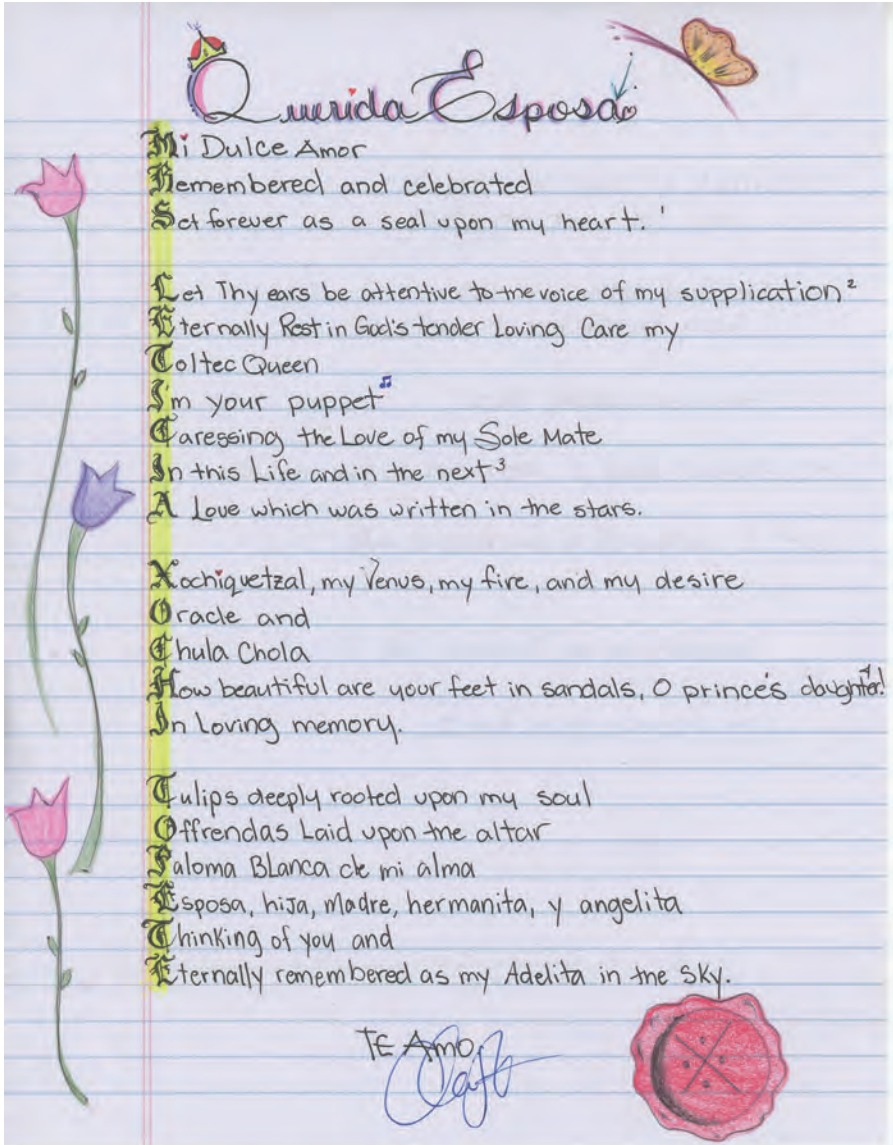 Querida Esposa
Mi Dulce Amor
Remembered and celebrated
Set forever as a seal upon my heart. ¹
Let Thy ears be attentive to the voice of my supplication ²
Eternally Rest in God's tender Loving Care my
Toltec Queen
I'm your puppet ♫
Caressing the Love of my Sole Mate
In this Life and in the next ³
A Love which was written in the stars.
Xochiquetzal, my Venus, my fire, and my desire
Oracle and
Chula Chola
How beautiful are your feet in sandals, O prince's daughter! ⁴
In Loving memory.
Tulips deeply rooted upon my soul
Offrendas Laid upon the altar
Paloma BLanca de mi alma
Esposa, hija, madre, hermanita, y angelita
Thinking of you and
Eternally remembered as my Adelita in the sky.
TE Amo,